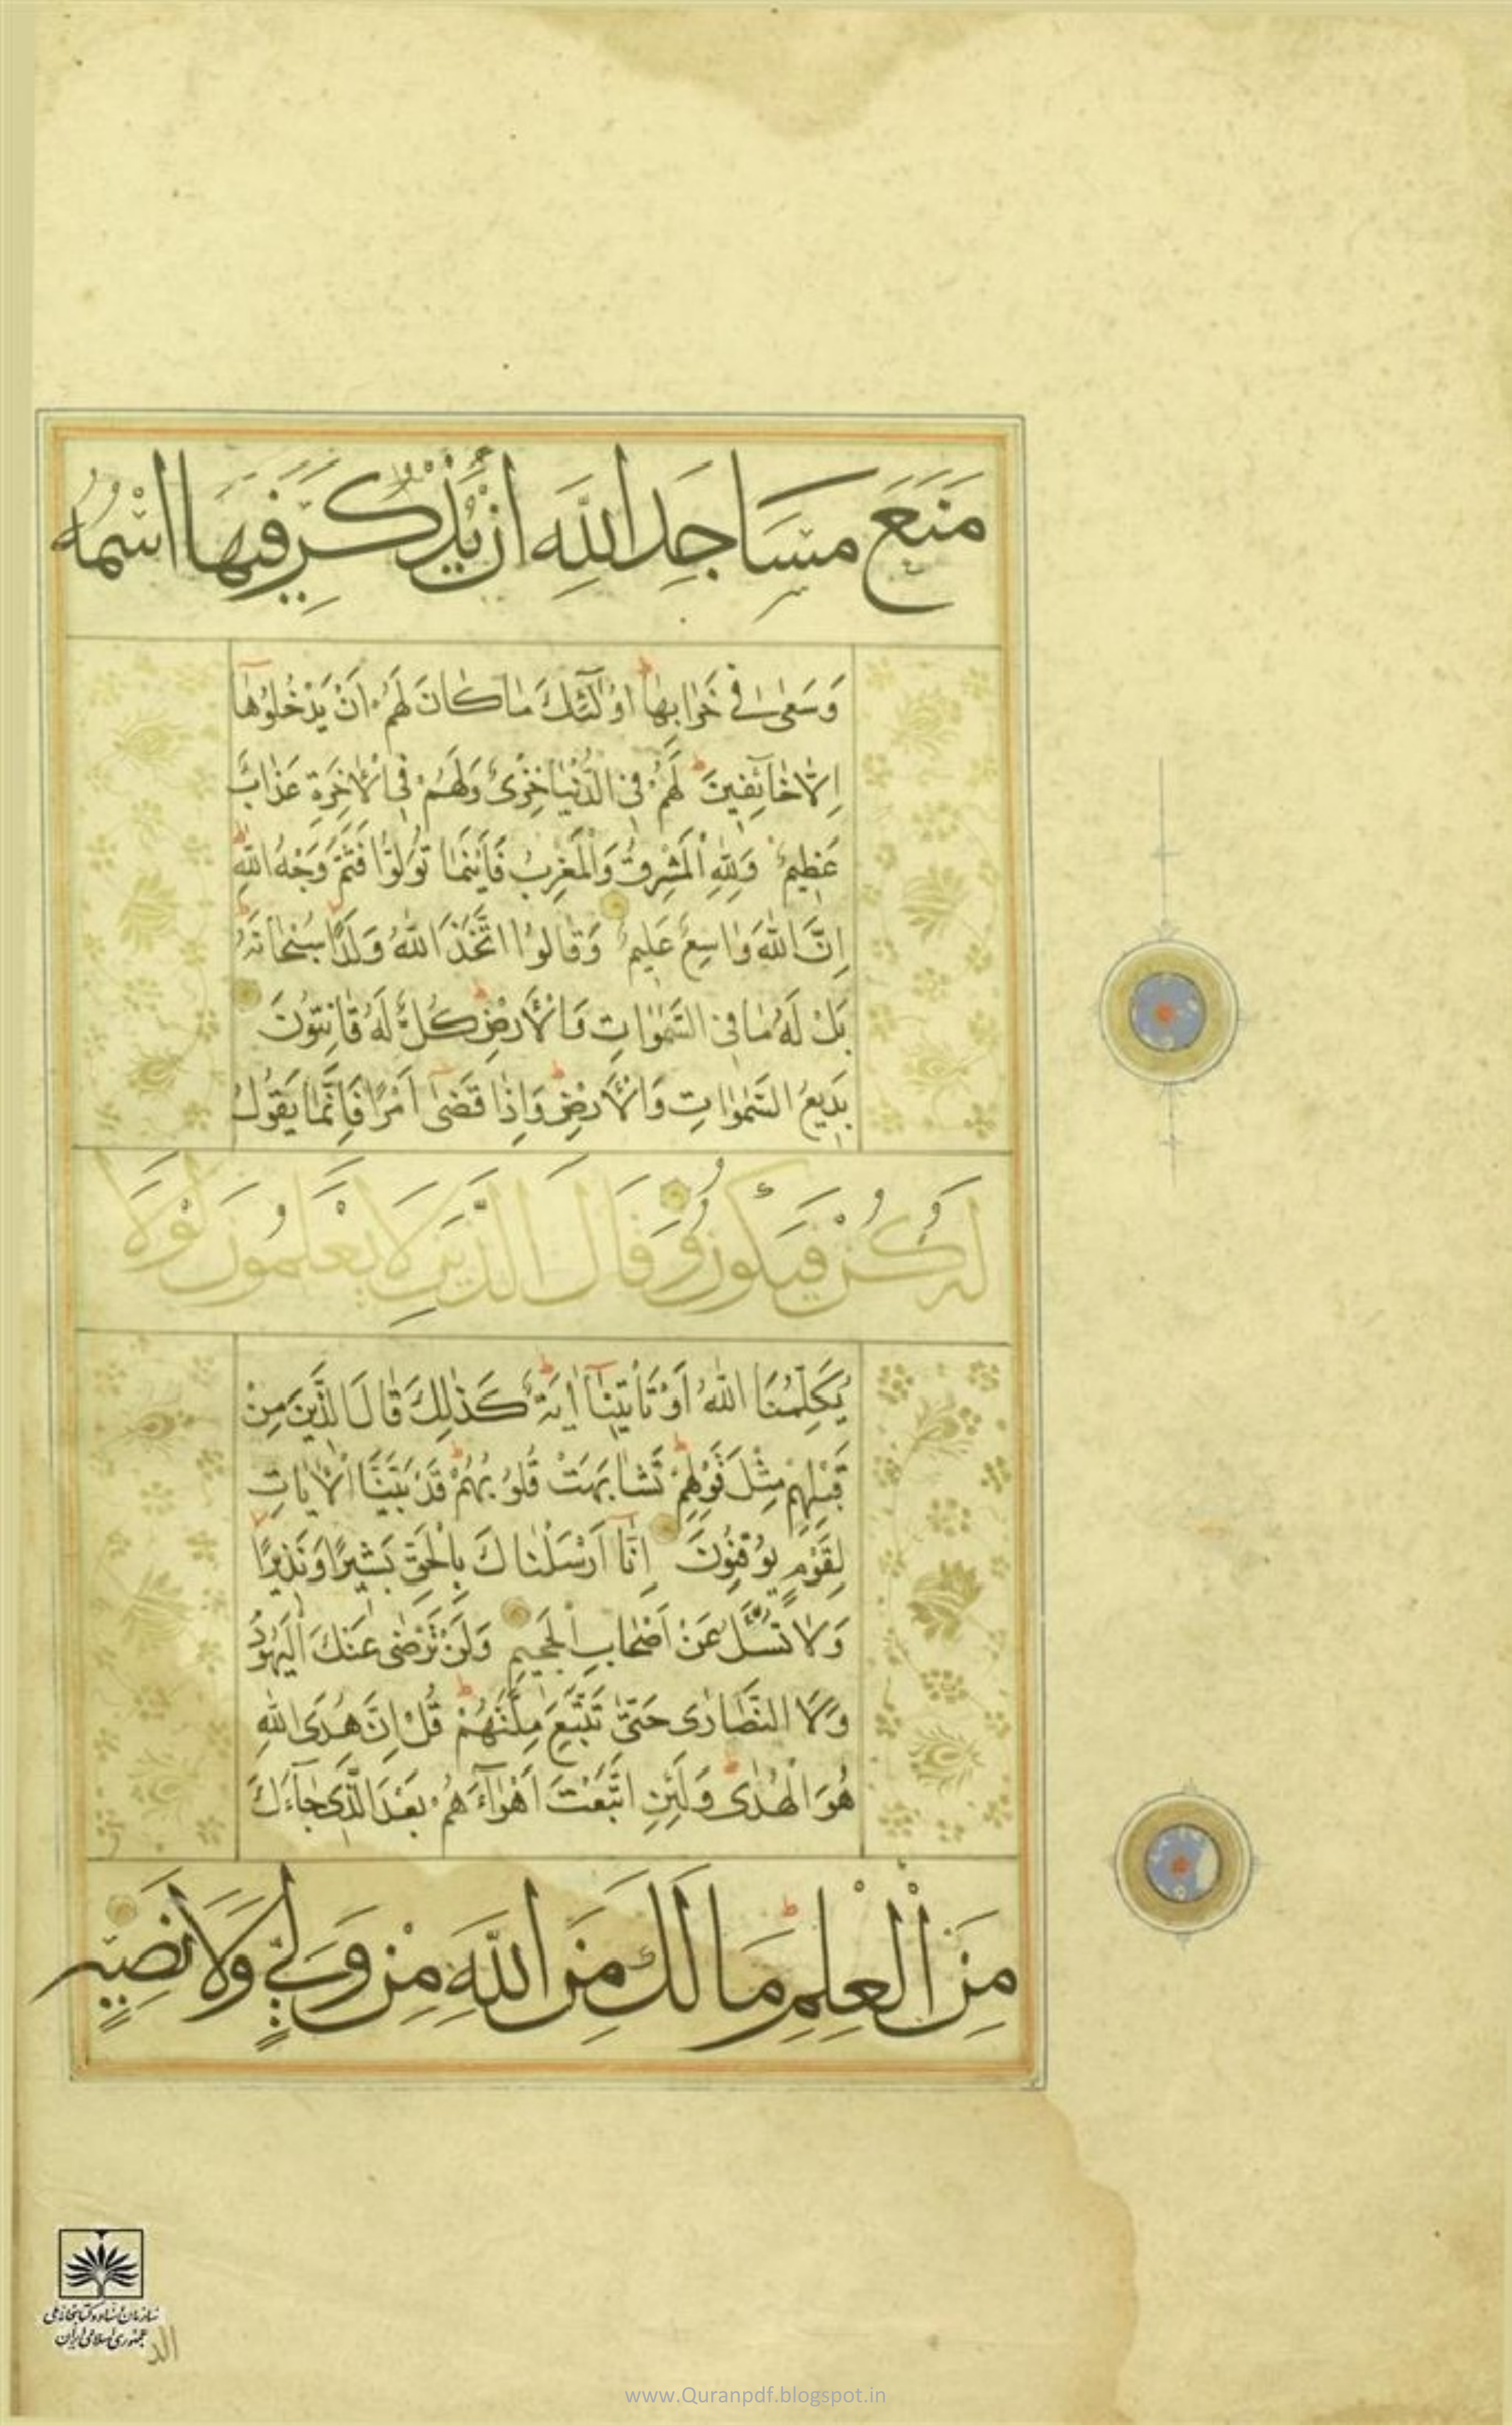 مَنَعَ مَسَاجِدَ اللَّهِ اَنْ يُذْكَرَ فِيهَا اسْمُهُ
وَسَعٰى فِى خَرَابِهَا اُولٰٓئِكَ مَا كَانَ لَهُمْ اَنْ يَدْخُلُوهَآ
اِلَّا خَآئِفِينَ لَهُمْ فِى الدُّنْيَا خِزْىٌ وَلَهُمْ فِى الْاٰخِرَةِ عَذَابٌ
عَظِيمٌ وَلِلّٰهِ الْمَشْرِقُ وَالْمَغْرِبُ فَاَيْنَمَا تُوَلُّوا فَثَمَّ وَجْهُ اللّٰهِ
اِنَّ اللّٰهَ وَاسِعٌ عَلِيمٌ وَقَالُوا اتَّخَذَ اللّٰهُ وَلَدًا سُبْحَانَهُ
بَلْ لَهُ مَا فِى السَّمٰوَاتِ وَالْاَرْضِ كُلٌّ لَهُ قَانِتُونَ
بَدِيعُ السَّمٰوَاتِ وَالْاَرْضِ وَاِذَا قَضٰىٓ اَمْرًا فَاِنَّمَا يَقُولُ
لَهُ كُنْ فَيَكُونُ وَقَالَ الَّذِينَ لَا يَعْلَمُونَ لَوْلَا
يُكَلِّمُنَا اللّٰهُ اَوْ تَاْتِينَآ اٰيَةٌ كَذٰلِكَ قَالَ الَّذِينَ مِنْ
قَبْلِهِمْ مِثْلَ قَوْلِهِمْ تَشَابَهَتْ قُلُوبُهُمْ قَدْ بَيَّنَّا الْاٰيَاتِ
لِقَوْمٍ يُوقِنُونَ اِنَّآ اَرْسَلْنَاكَ بِالْحَقِّ بَشِيرًا وَنَذِيرًا
وَلَا تُسْئَلُ عَنْ اَصْحَابِ الْجَحِيمِ وَلَنْ تَرْضٰى عَنْكَ الْيَهُودُ
وَلَا النَّصَارٰى حَتّٰى تَتَّبِعَ مِلَّتَهُمْ قُلْ اِنَّ هُدَى اللّٰهِ
هُوَ الْهُدٰى وَلَئِنِ اتَّبَعْتَ اَهْوَآءَهُمْ بَعْدَ الَّذِى جَآءَكَ
مِنَ الْعِلْمِ مَا لَكَ مِنَ اللَّهِ مِنْ وَلِىٍّ وَلَا نَصِيرٍ
سازمان اسناد و کتابخانه ملی
جمهوری اسلامی ایران
الذ
www.Quranpdf.blogspot.in